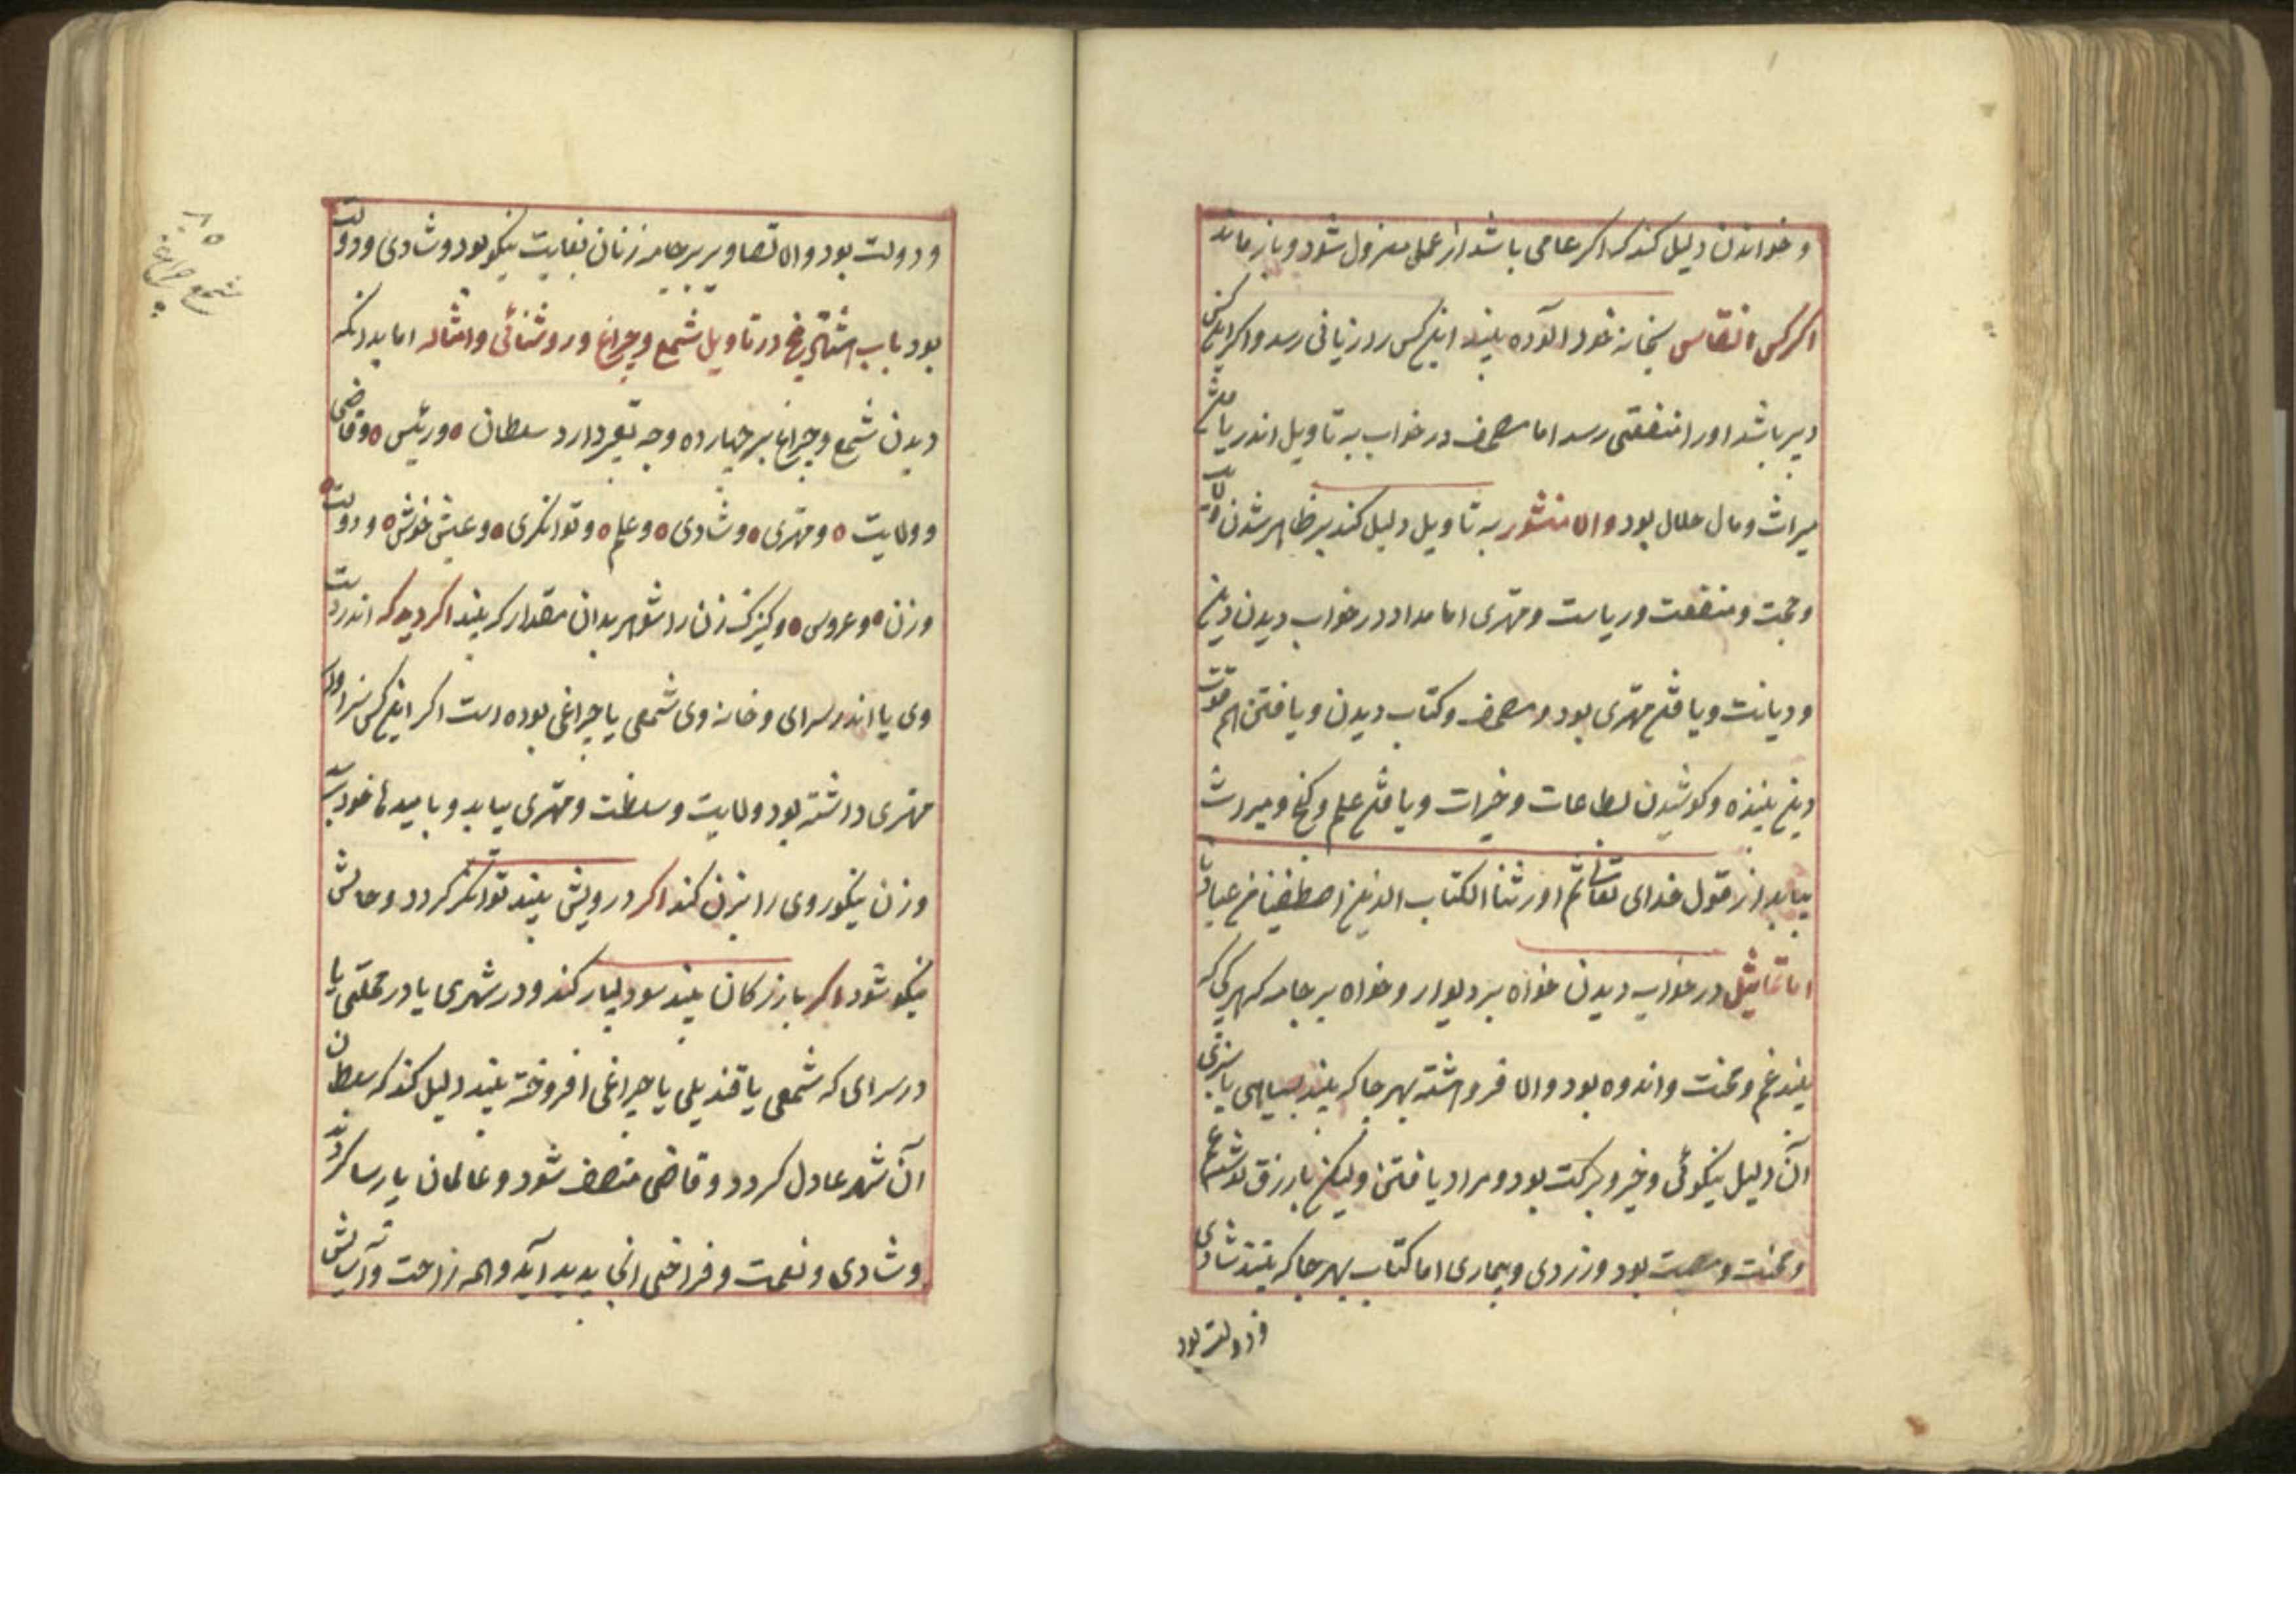 و خواندن دلیل کند که اکر عامی باشد از عمل معزول شود و باز ماند
اکر کس انقاس بخانه خود آلوده بیند این کس را زیانی رسد و اکر این کس
دبیر باشد او را منفعتی رسد اما مصحف در خواب به تاویل اندر یافتن
میراث و مال حلال بود والا منشور به تاویل دلیل کند بر ظاهر شدن ولایت
و حجت و منفعت و ریاست و مهتری اما مداد در خواب دیدن دین
و دیانت و یافتن مهتری بود و مصحف و کتاب دیدن و یافتن هم قوت
دین بیننده و کوشیدن بطاعات و خیرات و یافتن علم و کنج و میراث
بیابد از قول خدای تعالی ثم اورثنا الکتاب الذین اصطفینا من عبادنا
اما تماثیل در خواب دیدن خواه بر دیوار و خواه بر جامه که هر کی که
بیند غم و محنت و اندوه بود والا فروهشته بهر جا که بیند بسیاهی یا سبزی
آن دلیل نیکوئی و خیر و برکت بود و مراد یافتن ولیکن با رزق
و محنت و مصیبت بود و زردی و بیماری اما کتاب بهر جا که بیند شادی
و دولت بود
و دولت بود والا تصاویر بر جامه زنان بغایت نیکو بود و شادی و دولت
بود باب در تاویل شمع و چراغ و روشنائی و امثاله اما بدانکه
دیدن شمع و چراغ بر چهارده وجه دارد سلطان ٥ و رئیس ٥ و قاضی
و ولایت ٥ و مهتری ٥ و شادی ٥ و علم ٥ و توانکری ٥ و عیش خوش ٥ و دولت ٥
و زن ٥ و عروس ٥ و کنیزک زن را شوهر بدان مقدار که بیند اکر دید که اندر دست
وی یا اندر سرای و خانه وی شمعی یا چراغی بوده است اکر این کس سزاوار
مهتری داشته بود ولایت و سلطنت و مهتری بیابد و بامیدها خود برسد
و زن نیکو روی را بزن کند اکر درویش بیند توانکر کردد و حالش
نیکو شود اکر بازرکان بیند سود بسیار کند و در شهری یا در محلتی یا
در سرای که شمعی یا قندیلی یا چراغی افروخته بیند دلیل کند که سلطان
آن شهر عادل کردد و قاضی منصف شود و عالمان پارسا کردند
و شادی و نعمت و فراخی آنجا پدید آید و همه راحت و آسایش
٨٥
شمع چراغ